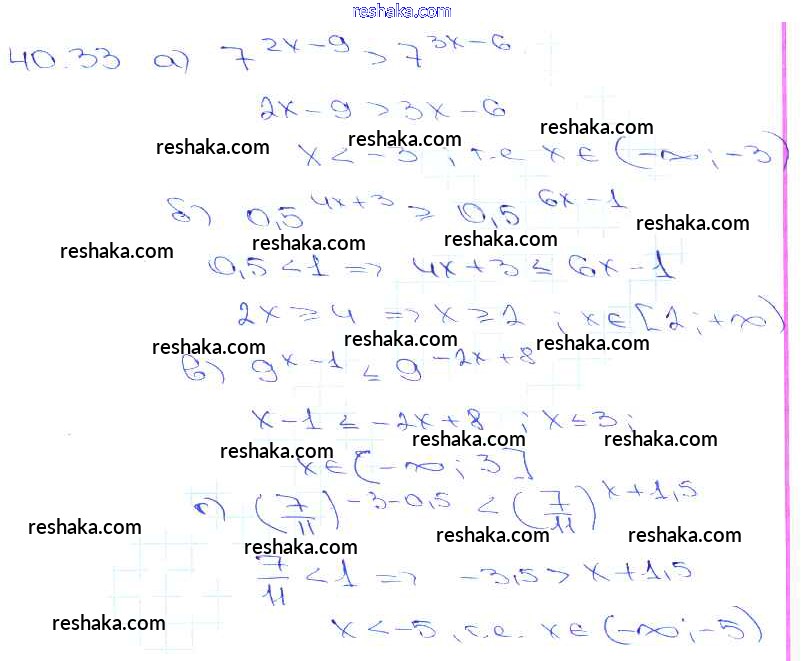 reshaka.com
40.33 а) 7^{2x-9} > 7^{3x-6}
2x-9 > 3x-6
reshaka.com reshaka.com reshaka.com
x < -3, т.е. x ∈ (-∞; -3)
б) 0,5^{4x+3} ≥ 0,5^{6x-1}
reshaka.com reshaka.com reshaka.com reshaka.com
0,5 < 1 => 4x+3 ≤ 6x-1
2x ≥ 4 => x ≥ 2; x ∈ [2; +∞)
reshaka.com reshaka.com reshaka.com
в) 9^{x-1} ≤ 9^{-2x+8}
x-1 ≤ -2x+8; x ≤ 3;
reshaka.com reshaka.com reshaka.com
x ∈ (-∞; 3]
г) (7/11)^{-3-0,5} < (7/11)^{x+1,5}
reshaka.com reshaka.com reshaka.com reshaka.com
7/11 < 1 => -3,5 > x+1,5
reshaka.com
x < -5, т.е. x ∈ (-∞; -5)